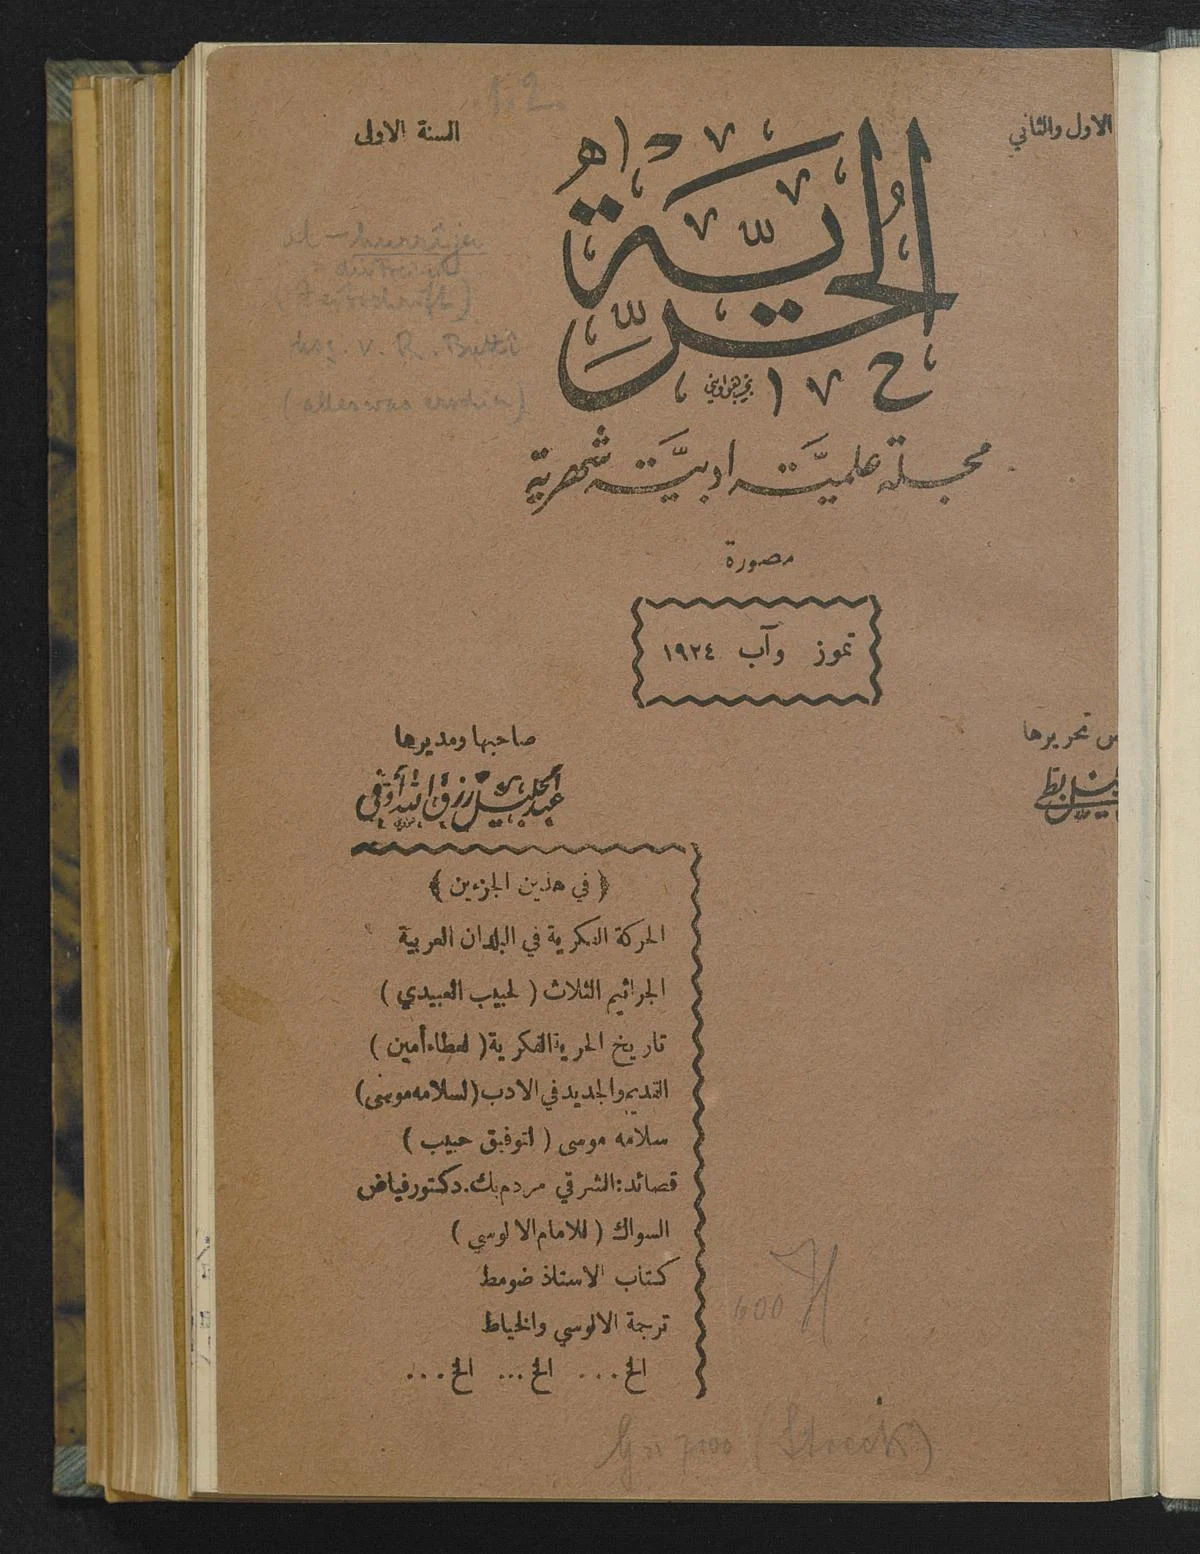 الاول والثاني
السنة الاولى
1.2.
الحُرِّيَّةُ
al-hurrija
(Zeitschrift)
hsg. v. R. Butti
(alles was erschien)
مجلة علميَّة ادبيَّة شهرية
مصورة
تموز وآب ١٩٢٤
تحريرها
بطي
صاحبها ومديرها
عبد الجليل رزق الله أوفي
﴿ في هذين الجزءين ﴾
الحركة الفكرية في البلدان العربية
الجراثيم الثلاث ( لحبيب العبيدي )
تاريخ الحرية الفكرية ( لعطاء أمين )
القديم والجديد في الادب (لسلامه موسى)
سلامه موسى ( لتوفيق حبيب )
قصائد: الشرقي مردم بك. دكتور فياض
السواك ( للامام الالوسي )
كتاب الاستاذ ضومط
ترجمة الالوسي والخياط
الخ... الخ... الخ...
600
7100 (Streck)